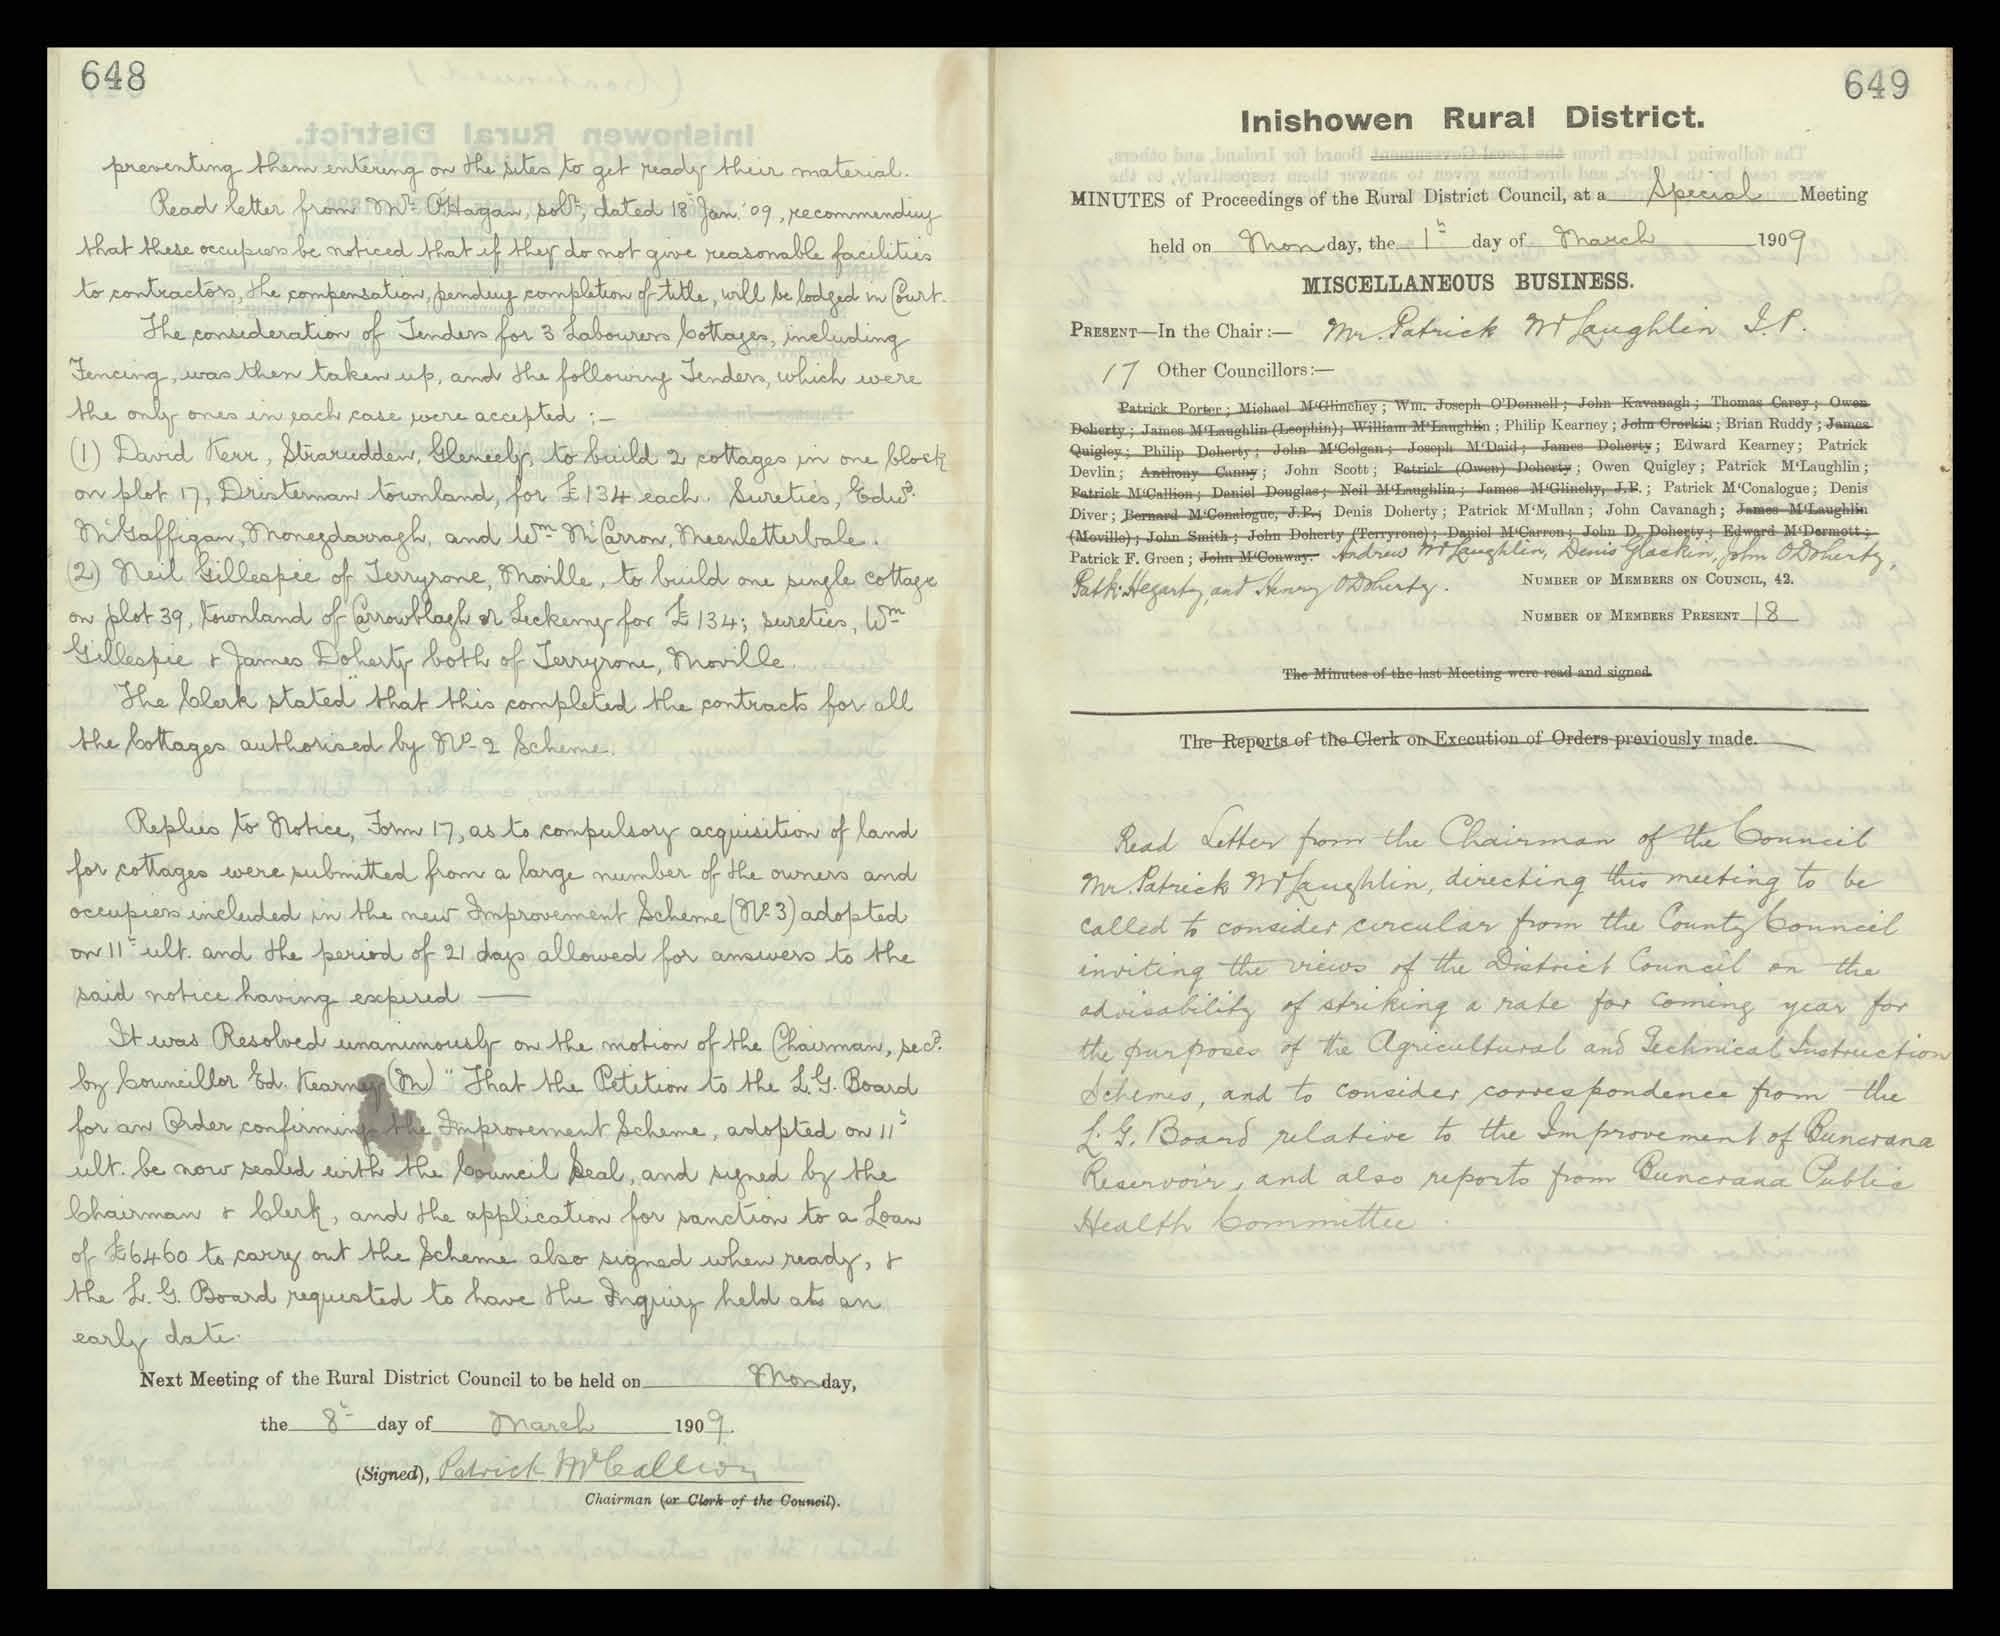 648
preventing them entering on the sites to get ready their material.
Read letter from Mr. O'Hagan, solr, dated 18th Jan. '09, recommending
that these occupiers be noticed that if they do not give reasonable facilities
to contractors, the compensation, pending completion of title, will be lodged in Court.
The consideration of Tenders for 3 Labourers Cottages, including
Fencing, was then taken up, and the following Tenders, which were
the only ones in each case were accepted :-
(1) David Kerr, Strarudden, Gleneely, to build 2 cottages in one block
on plot 17, Dristernan townland, for £134 each. Sureties, Edwd.
McGaffigan, Monegdarragh, and Wm McCarron, Meenletterbale.
(2) Neil Gillespie of Terryrone, Moville, to build one single cottage
on plot 39, townland of Carrowblagh or Leckemy for £134; sureties, Wm
Gillespie & James Doherty both of Terryrone, Moville.
The Clerk stated that this completed the contracts for all
the Cottages authorised by No. 2 Scheme.
Replies to Notice, Form 17, as to compulsory acquisition of land
for cottages were submitted from a large number of the owners and
occupiers included in the new Improvement Scheme (No. 3) adopted
on 11th ult. and the period of 21 days allowed for answers to the
said notice having expired —
It was Resolved unanimously on the motion of the Chairman, secd.
by Councillor Ed. Kearney (M) "That the Petition to the L.G. Board
for an Order confirming the Improvement Scheme, adopted on 11th
ult. be now sealed with the Council Seal, and signed by the
Chairman & Clerk, and the application for sanction to a Loan
of £6460 to carry out the Scheme also signed when ready, &
the L.G. Board requested to have the Inquiry held at an
early date.
Next Meeting of the Rural District Council to be held on Monday,
the 8th day of March 1909.
(Signed), Patrick McCallion
Chairman (or Clerk of the Council).
649
Inishowen Rural District.
MINUTES of Proceedings of the Rural District Council, at a Special Meeting
held on Monday, the 1st day of March 1909
MISCELLANEOUS BUSINESS.
PRESENT—In the Chair :— Mr. Patrick McLaughlin J.P.
17 Other Councillors :—
Patrick Porter; Michael M'Glinchey; Wm. Joseph O'Donnell; John Kavanagh; Thomas Carey; Owen
Doherty; James M'Laughlin (Leophin); William M'Laughlin; Philip Kearney; John Crorkin; Brian Ruddy; James
Quigley; Philip Doherty; John M'Colgan; Joseph M'Daid; James Doherty; Edward Kearney; Patrick
Devlin; Anthony Canny; John Scott; Patrick (Owen) Doherty; Owen Quigley; Patrick M'Laughlin;
Patrick M'Callion; Daniel Douglas; Neil M'Laughlin; James M'Glinchy, J.P.; Patrick M'Conalogue; Denis
Diver; Bernard M'Conalogue, J.P.; Denis Doherty; Patrick M'Mullan; John Cavanagh; James M'Laughlin
(Moville); John Smith; John Doherty (Terryrone); Daniel M'Carron; John D. Doherty; Edward M'Dermott;
Patrick F. Green; John M'Conway. Andrew McLaughlin, Denis Glackin, John O'Doherty,
Patk. Hegarty, and Henry O'Doherty.
NUMBER OF MEMBERS ON COUNCIL, 42.
NUMBER OF MEMBERS PRESENT 18
The Minutes of the last Meeting were read and signed.
The Reports of the Clerk on Execution of Orders previously made.
Read Letter from the Chairman of the Council
Mr. Patrick McLaughlin, directing this meeting to be
called to consider circular from the County Council
inviting the views of the District Council on the
advisability of striking a rate for coming year for
the purposes of the Agricultural and Technical Instruction
Schemes, and to consider correspondence from the
L.G. Board relative to the Improvement of Buncrana
Reservoir, and also reports from Buncrana Public
Health Committee.